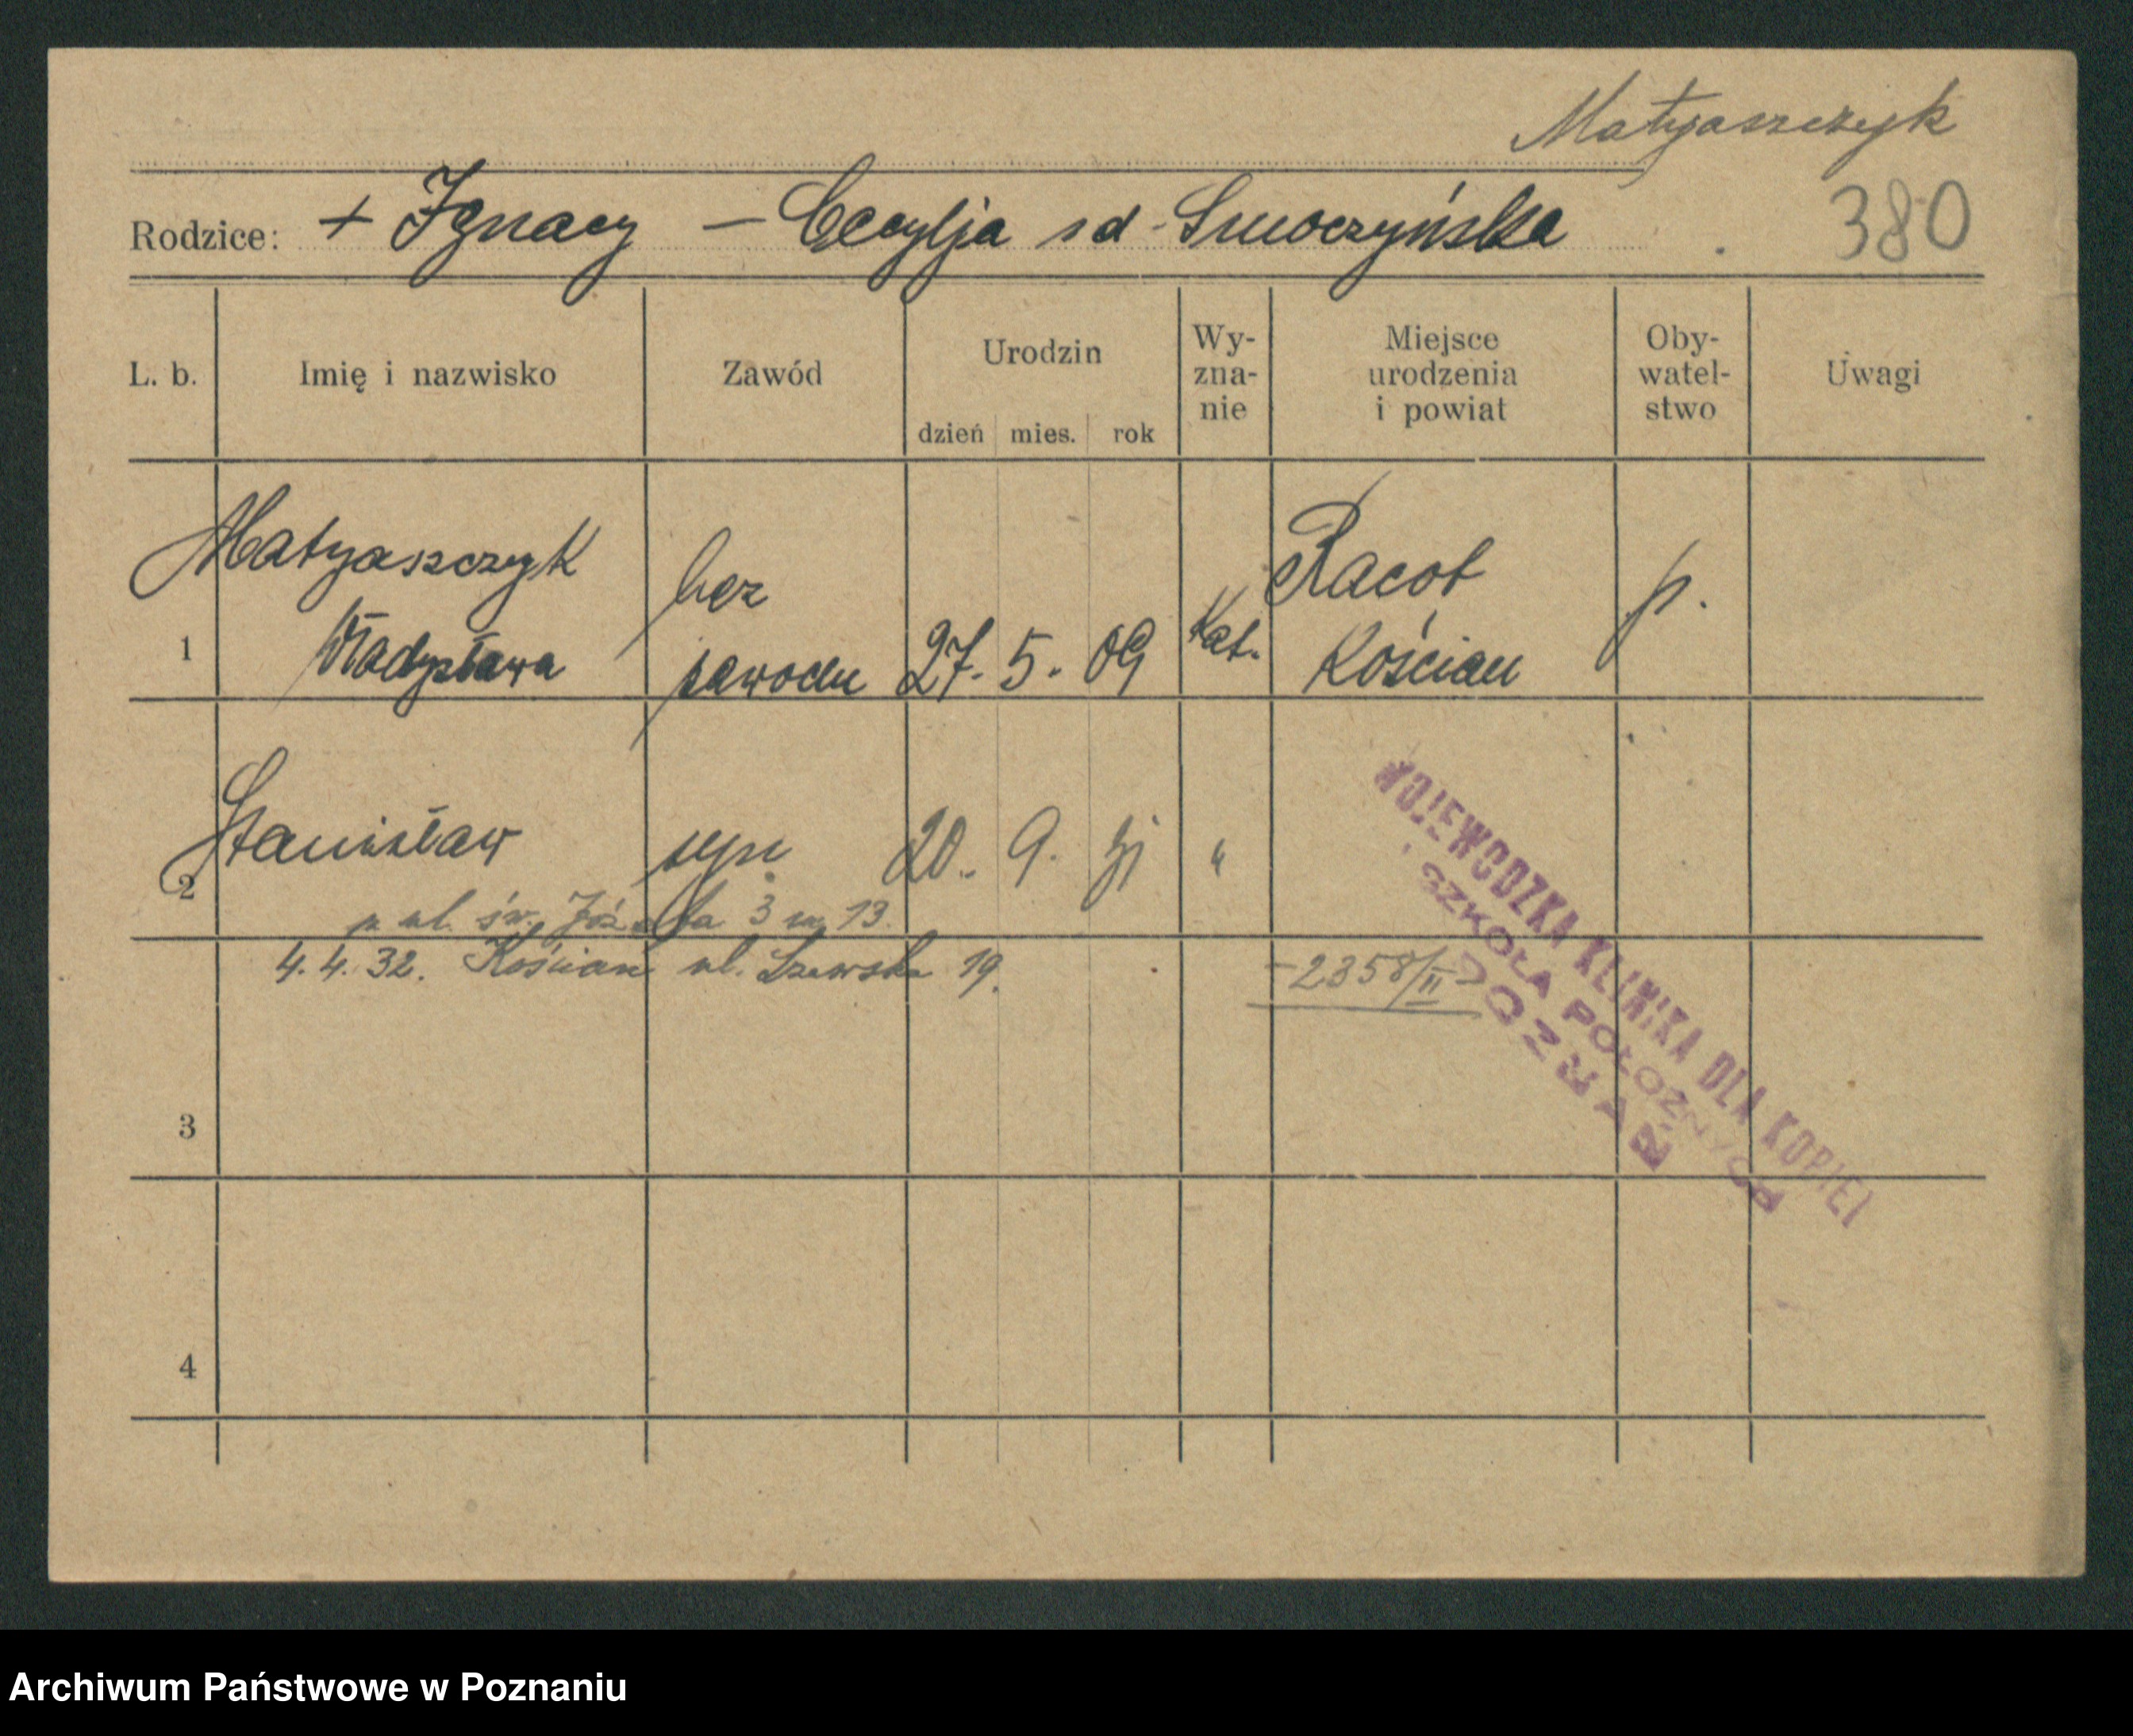 Matyaszczyk
Rodzice: + Ignacy – Cecylja z d. Smoczyńska
380
L. b. Imię i nazwisko Zawód Urodzin dzień mies. rok Wy-zna-nie Miejsce urodzenia i powiat Oby-watel-stwo Uwagi
Matyaszczyk bez Racot p.
1 Władysława zawodu 27. 5. 09 Kat. Kościan
Stanisław syn 20. 9. 31 "
2
p. ul. św. Józefa 3 m 13.
4. 4. 32. Kościan ul. Szewska 19. - 2358/II
WOJEWODZKA KLINIKA DLA KOBIET
I SZKOŁA POŁOŻNYCH
POZNAŃ
3
4
Archiwum Państwowe w Poznaniu